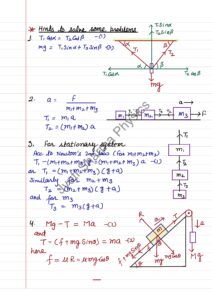 * Hints to solve some problems
1) T₁cosα = T₂cosβ -(1)
mg = T₁sinα + T₂sinβ -(2)
T₁sinα
+
T₂sinβ
α
β
T₁
T₂
α
β
T₁cosα
T₂cosβ
mg
2. a = F / m₁+m₂+m₃
T₁ = m₁a
T₂ = (m₁+m₂)a
a→
m₁
T₁
m₂
T₂
m₃
→F
3. For stationary system
Acc to Newton's 2nd law (for m₁+m₂+m₃)
T₁-(m₁+m₂+m₃)g = (m₁+m₂+m₃)a -(1)
or T₁ = (m₁+m₂+m₃)(g+a)
Similarly for m₂+m₃
T₂ = (m₂+m₃)(g+a)
and for m₃
T₃ = m₃(g+a)
↑T₁
m₁
↑T₂
m₂
↑T₃
m₃
4. Mg-T = Ma -(1)
and
T-(f+mgsinθ) = ma -(2)
here
f = μR = μmgcosθ
R
T
m
T
a
Mg
f+mgsinθ
mg
mgcosθ
θ
Physics